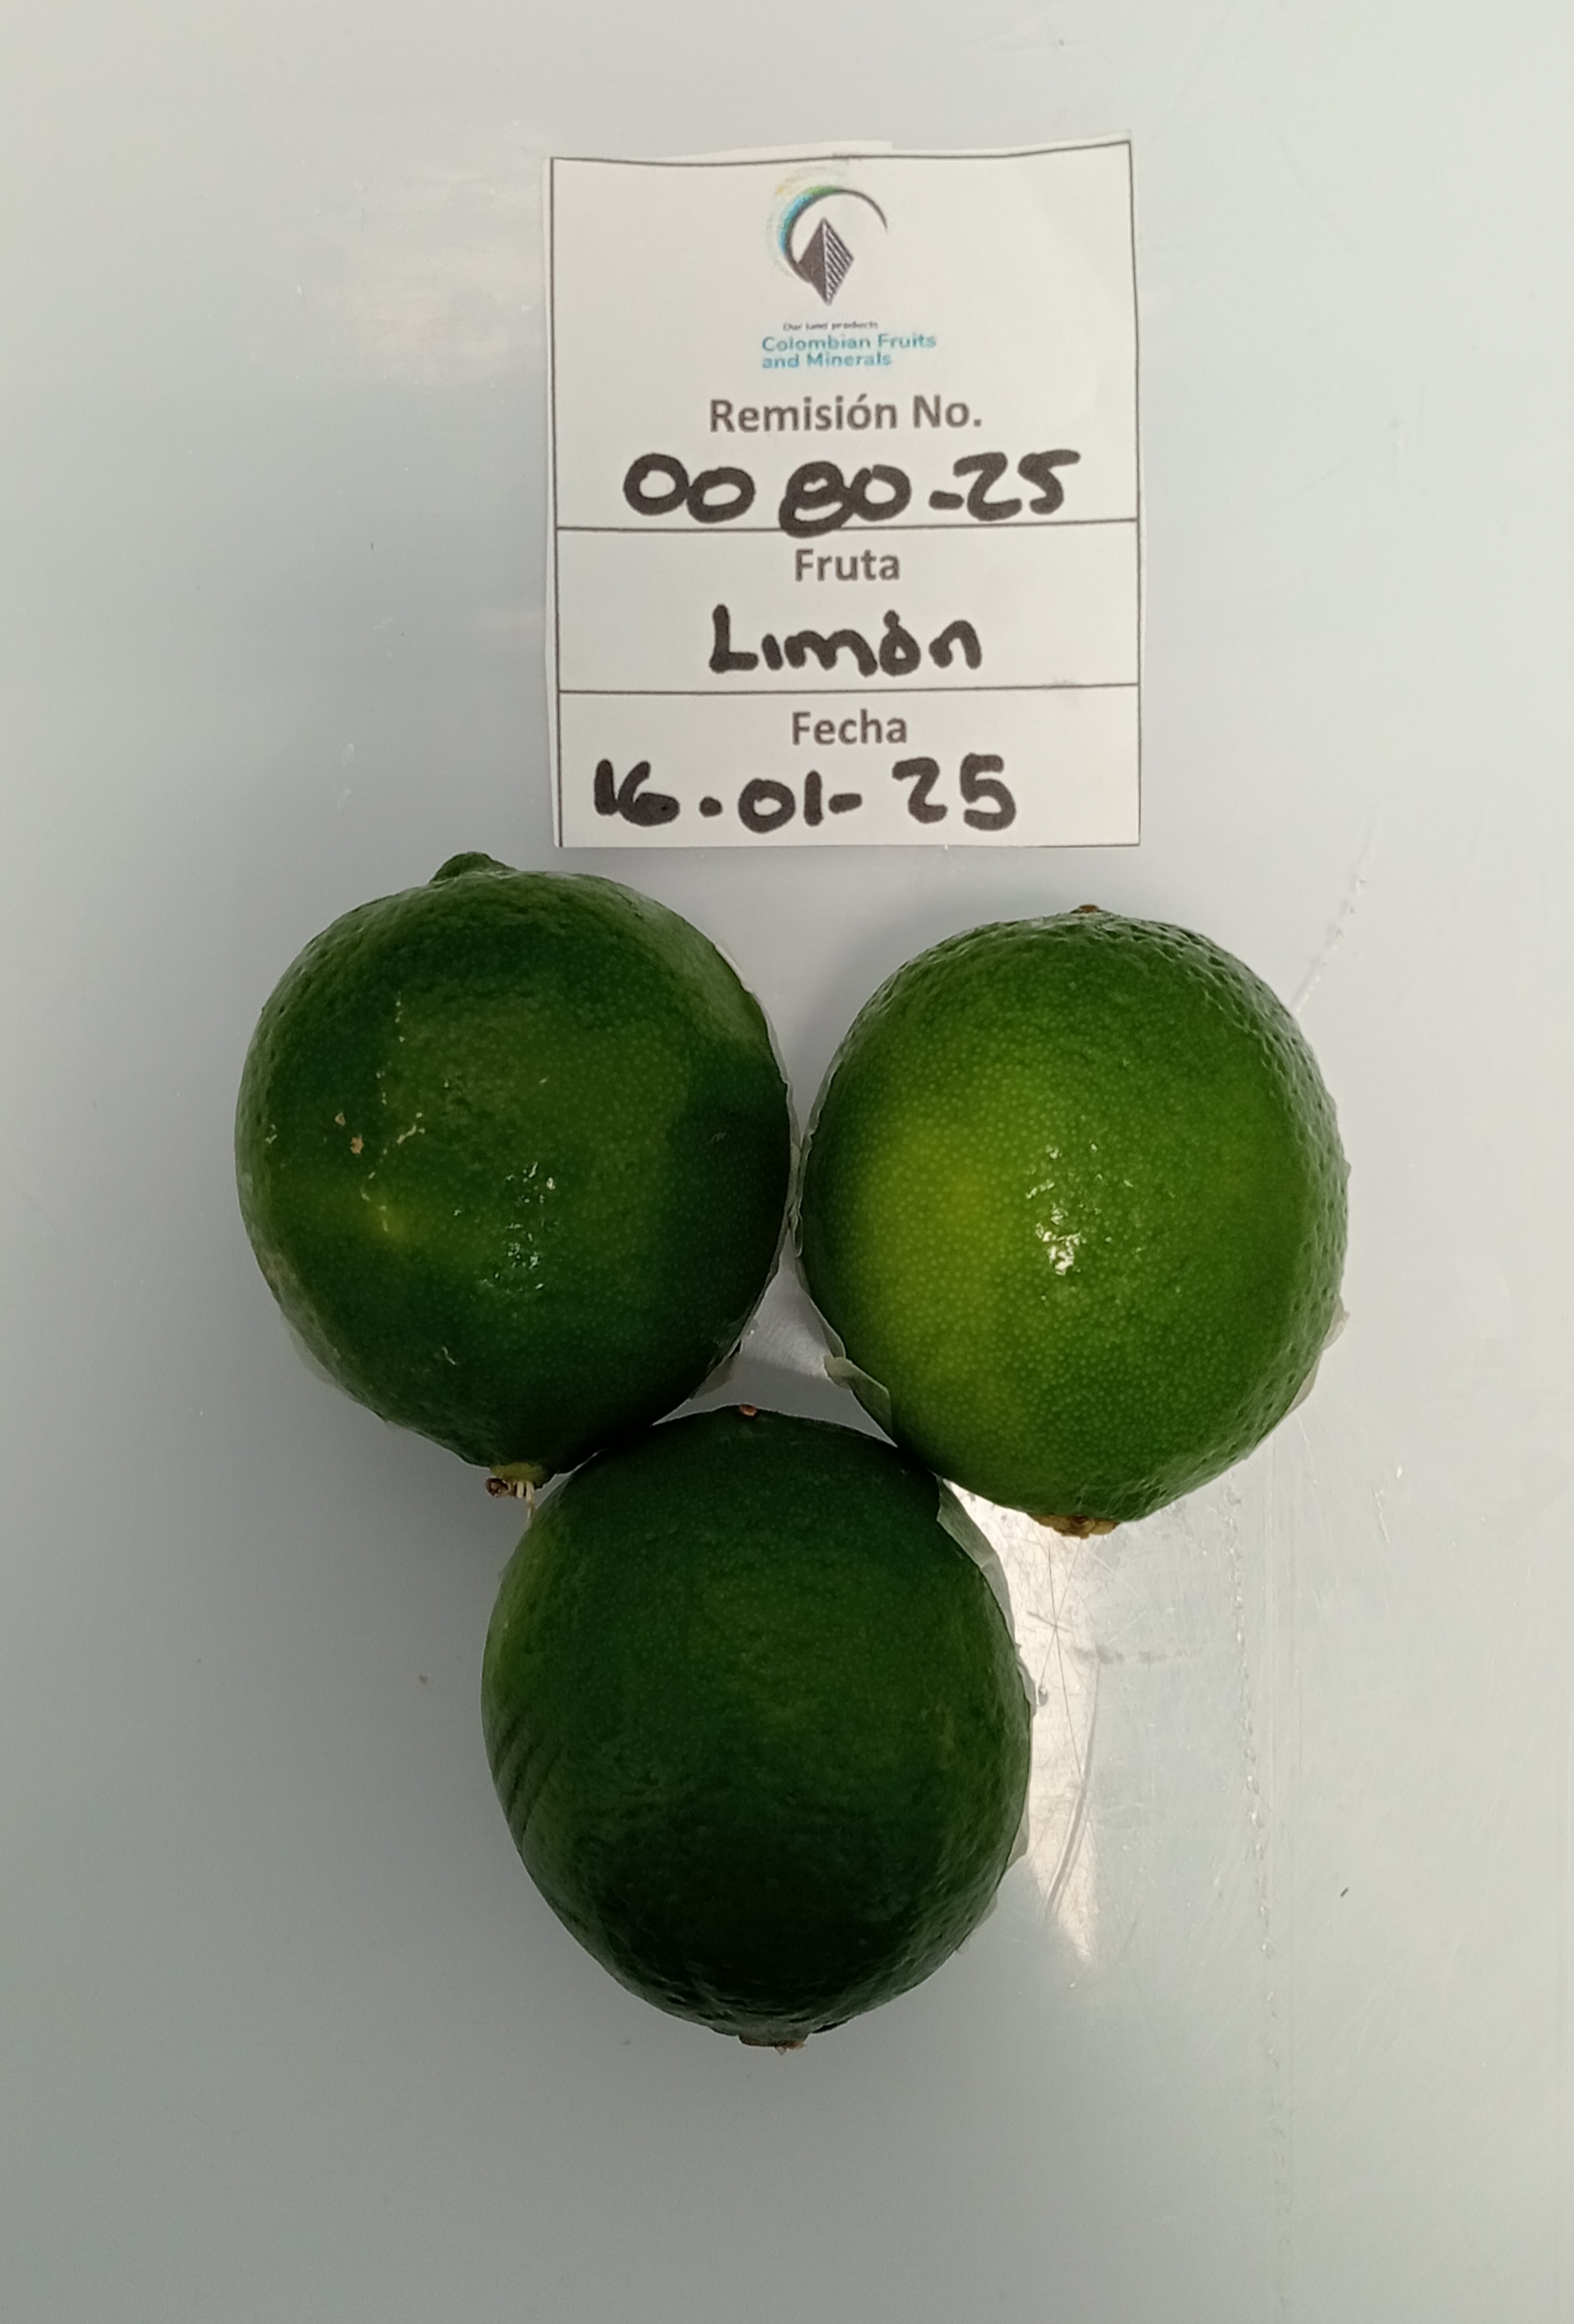 Our land products
Colombian Fruits
and Minerals
Remisión No.
0080-25
Fruta
Limón
Fecha
16.01-25